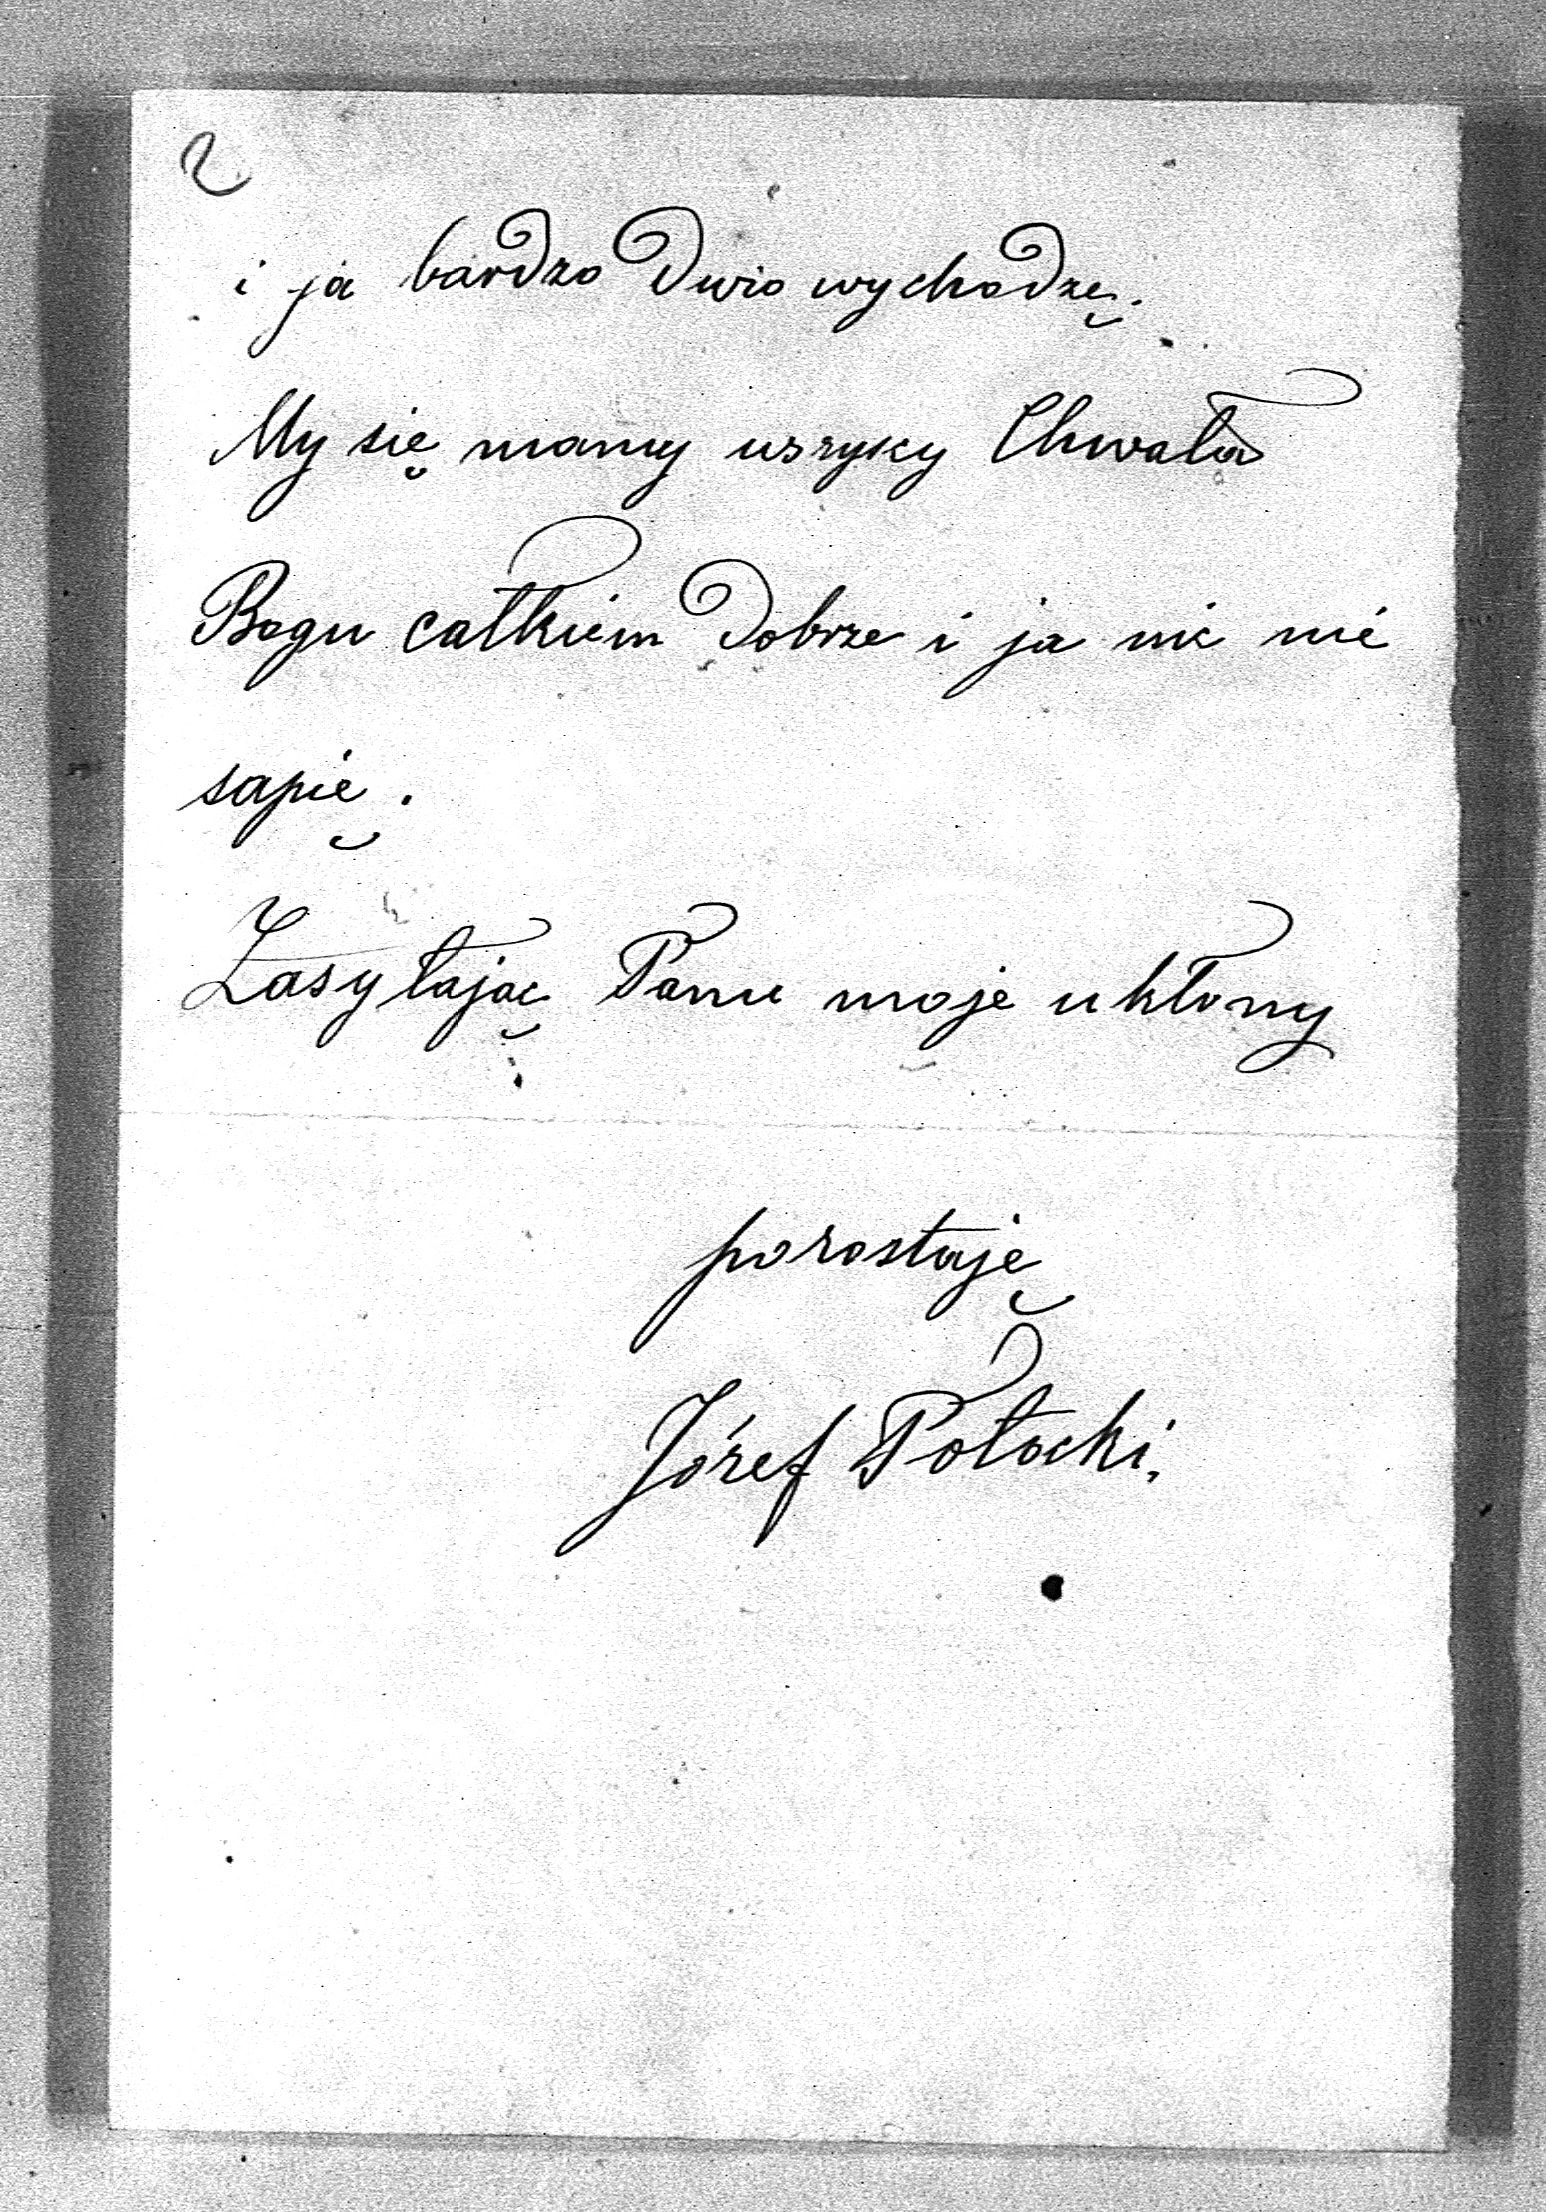 2
i ja bardzo dużo wychodzę.
My się mamy wszyscy Chwała
Bogu całkiem dobrze i ja nic nie
sapię.
Zasyłając Panu moje ukłony
pozostaję
Józef Potocki.